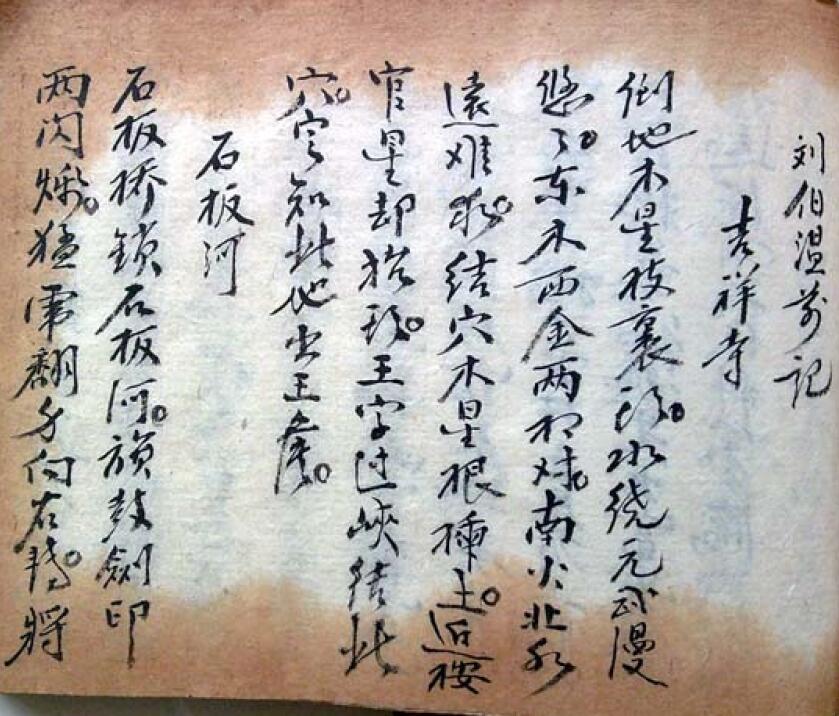 刘伯温前记
吉祥寺
倒地木星枝裹，水绕元武漫
悠々。东木西金两相对。南火北水
远难求。结穴木星根插土。近按
官星却抬头。王字过峡结此
穴。穴知此地出王侯。
石板河
石板桥锁石板河。旗鼓剑印
两闪烁。猛虎翻身向右转。將